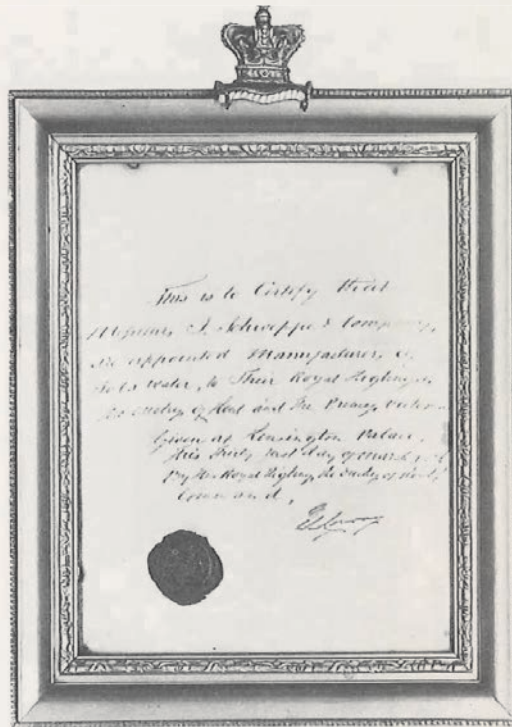 This is to Certify that
Messieurs J. Schweppe & Company,
are appointed Manufacturers of
Soda water, to Their Royal Highnesses
the Duchess of Kent and The Princess Victoria
Given at Kensington Palace,
this thirty first day of March
By Her Royal Highness the Duchess of Kent's
Command,